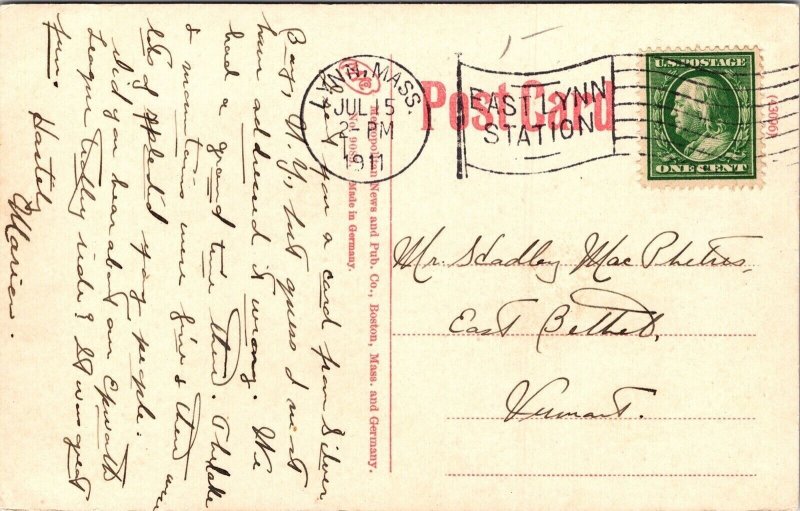 LYNN, MASS.
JUL 5
2-PM
1911
EAST LYNN
STATION
Post Card
U.S. POSTAGE
ONE CENT
Metropolitan News and Pub. Co., Boston, Mass. and Germany.
No. 908 Made in Germany.
Mr. Hadley Mac Phetres,
East Bethel,
Vermont.
Sent you a card from Silver
Bay, N.Y., but guess I must
have addressed it wrong. We
had a grand time there. The lake
& mountains were fine & there were
lots of splendid young people.
Did you hear about our Epworth
League trolley ride? It was great
fun. Hastily
Marion.